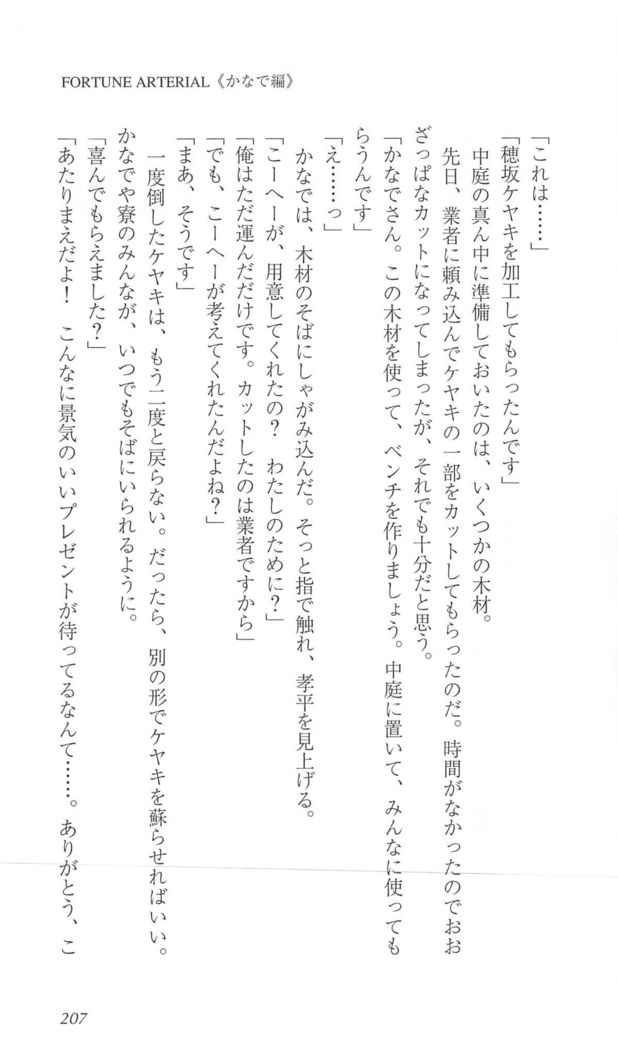 FORTUNE ARTERIAL《かなで編》
「これは……」
「穂坂ケヤキを加工してもらったんです」
　中庭の真ん中に準備しておいたのは、いくつかの木材。
　先日、業者に頼み込んでケヤキの一部をカットしてもらったのだ。時間がなかったのでおお
ざっぱなカットになってしまったが、それでも十分だと思う。
「かなでさん。この木材を使って、ベンチを作りましょう。中庭に置いて、みんなに使っても
らうんです」
「え……っ」
　かなでは、木材のそばにしゃがみ込んだ。そっと指で触れ、孝平を見上げる。
「こーへーが、用意してくれたの？　わたしのために？」
「俺はただ運んだだけです。カットしたのは業者ですから」
「でも、こーへーが考えてくれたんだよね？」
「まあ、そうです」
　一度倒したケヤキは、もう二度と戻らない。だったら、別の形でケヤキを蘇らせればいい。
かなでや寮のみんなが、いつでもそばにいられるように。
「喜んでもらえました？」
「あたりまえだよ！　こんなに景気のいいプレゼントが待ってるなんて……。ありがとう、こ
207